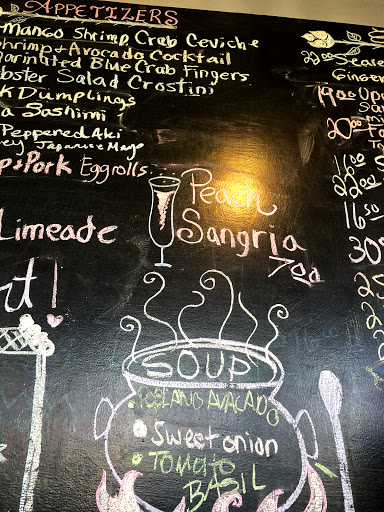 APPETIZERS
Mango Shrimp Crab Ceviche
Shrimp + Avocado Cocktail
Marinated Blue Crab Fingers
Lobster Salad Crostini
K Dumplings
a Sashimi
Peppered Aki
ey Japanese Mayo
p + Pork Eggrolls
Limeade
Peach
Sangria
7.00
SOUP
POBLANO AVACADO
Sweet onion
TOMATO
BASIL
22.00 Seare
Ginger
19.00
20.00
16.00
22.00
16.50